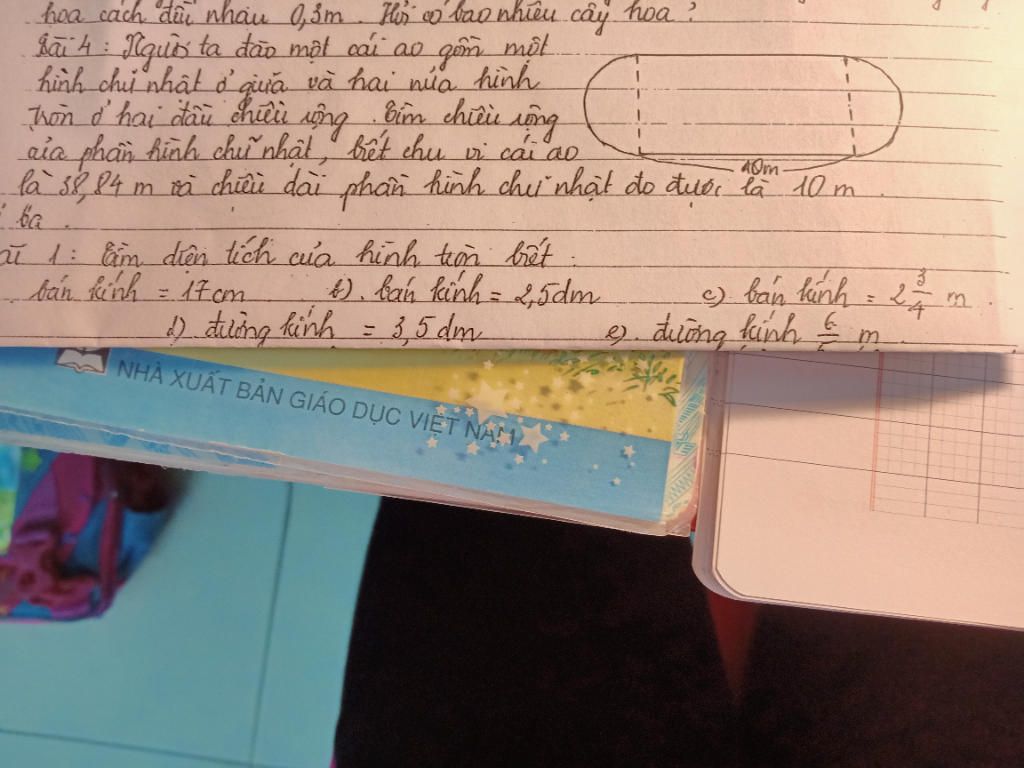 hoa cách đều nhau 0,3m. Hỏi có bao nhiêu cây hoa?
Bài 4: Người ta đào một cái ao gồm một
hình chữ nhật ở giữa và hai nửa hình
tròn ở hai đầu chiều rộng. Tìm chiều rộng
của phần hình chữ nhật, biết chu vi cái ao
10m
là 38,84 m và chiều dài phần hình chữ nhật đo được là 10 m.
ba
ài 1: Tìm diện tích của hình tròn biết:
bán kính = 17cm b). bán kính = 2,5dm c). bán kính = 2 3/4 m.
d) đường kính = 3,5 dm e). đường kính m
NHÀ XUẤT BẢN GIÁO DỤC VIỆT NAM